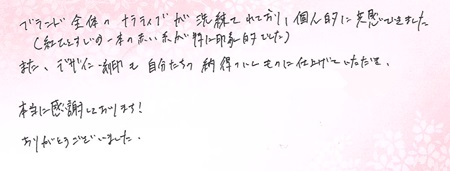 ブランド全体のナラティブが洗練されており、個人的に共感できました
(紅ひとすじの一本の赤い糸が特に印象的でした)
また、デザイン・刻印も自分たちの納得のいくものに仕上げていただき、
本当に感謝しております!
ありがとうございました。